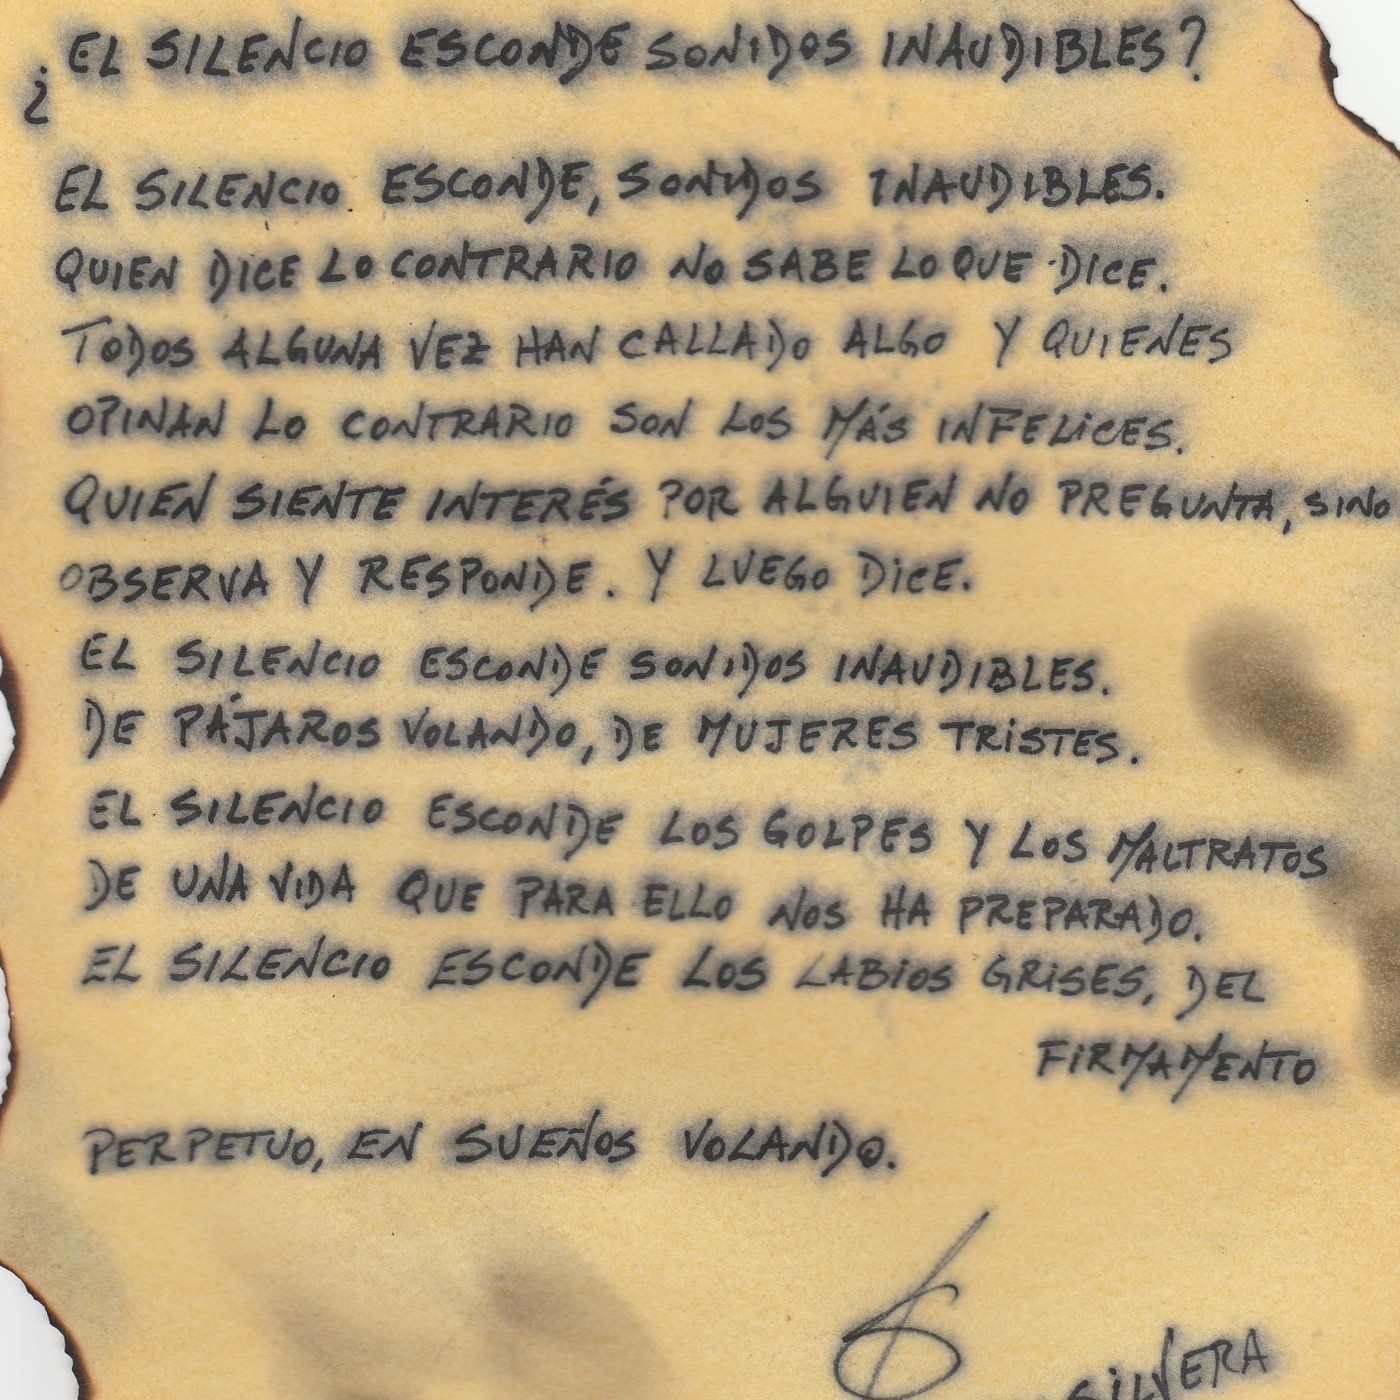 ¿EL SILENCIO ESCONDE SONIDOS INAUDIBLES?
EL SILENCIO ESCONDE, SONIDOS INAUDIBLES.
QUIEN DICE LO CONTRARIO NO SABE LO QUE DICE.
TODOS ALGUNA VEZ HAN CALLADO ALGO Y QUIENES
OPINAN LO CONTRARIO SON LOS MÁS INFELICES.
QUIEN SIENTE INTERÉS POR ALGUIEN NO PREGUNTA, SINO
OBSERVA Y RESPONDE. Y LUEGO DICE.
EL SILENCIO ESCONDE SONIDOS INAUDIBLES.
DE PÁJAROS VOLANDO, DE MUJERES TRISTES.
EL SILENCIO ESCONDE LOS GOLPES Y LOS MALTRATOS
DE UNA VIDA QUE PARA ELLO NOS HA PREPARADO.
EL SILENCIO ESCONDE LOS LABIOS GRISES, DEL
FIRMAMENTO
PERPETUO, EN SUEÑOS VOLANDO.
SILVERA